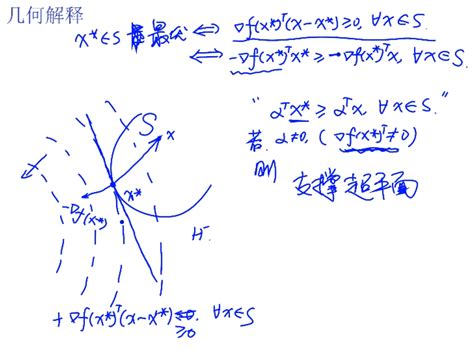 几何解释
x*∈S 最优 ⟺ ∇f(x*)ᵀ(x-x*)≥0, ∀x∈S.
⟺ -∇f(x*)ᵀx* ≥ -∇f(x*)ᵀx, ∀x∈S.
"αᵀx* ≥ αᵀx, ∀x∈S."
若 α≠0, (∇f(x*)ᵀ≠0)
则 支撑超平面
S
x
x*
-∇f(x*)
H⁻
+∇f(x*)ᵀ(x-x*) ≥0 ∀x∈S